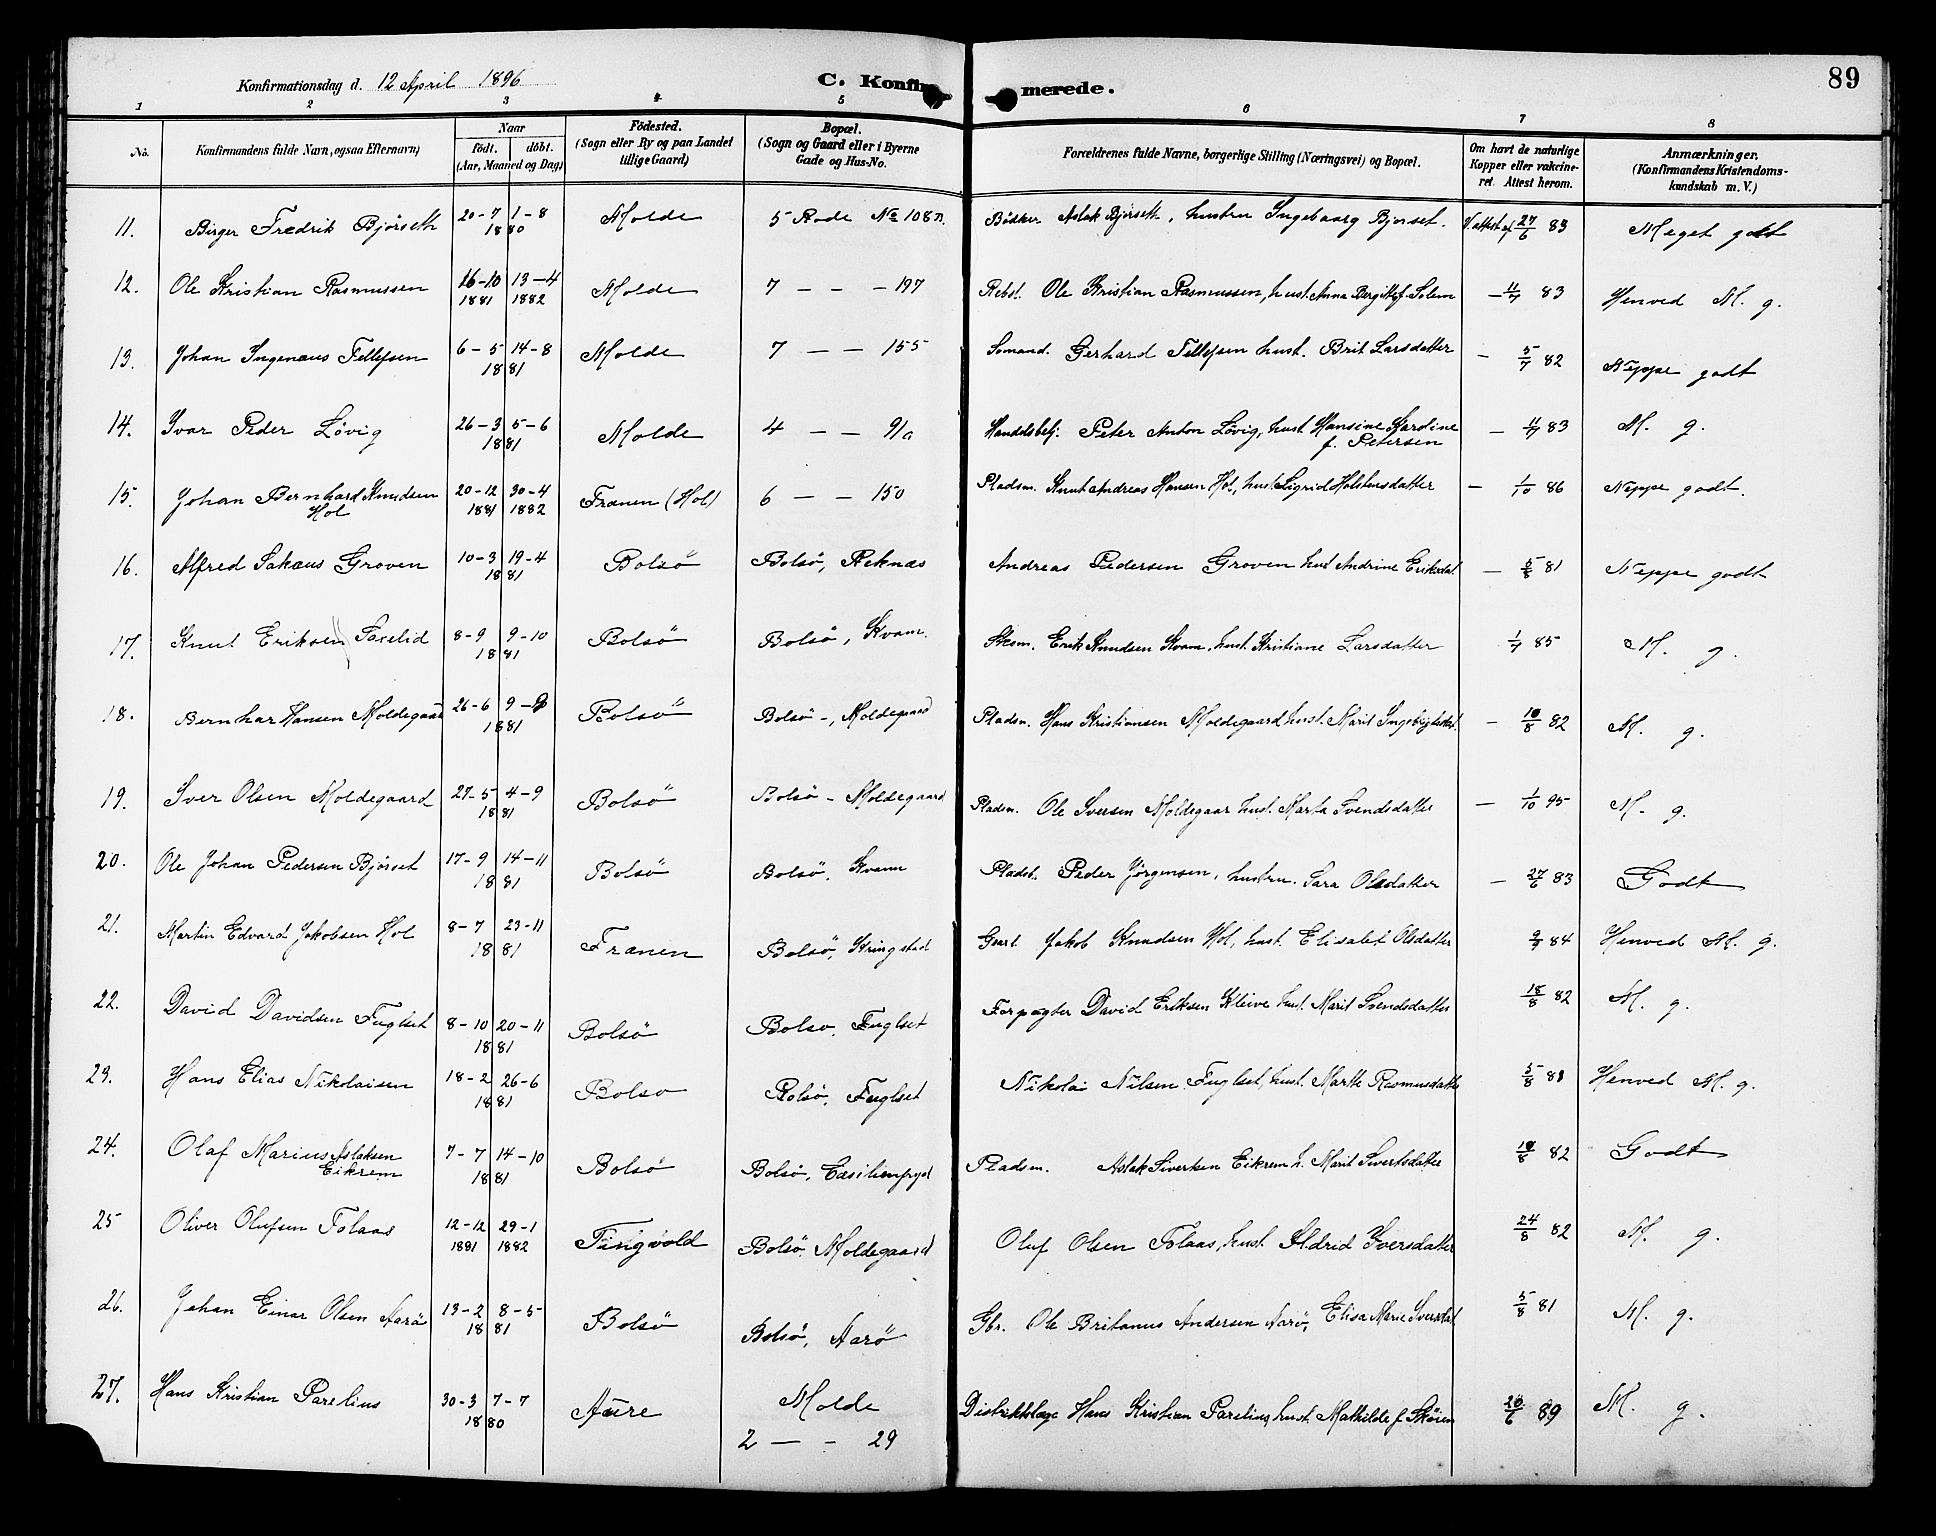 89
Konfirmationsdag d. 12 April 1896
C. Konfirmerede.
1 2 3 4 5 6 7 8
No. Konfirmandens fulde Navn, ogsaa Efternavn) Naar født. døbt. (Aar, Maaned og Dag) Fødested. (Sogn eller By og paa Landet tillige Gaard) Bopæl. (Sogn og Gaard eller i Byerne Gade og Hus-No. Forældrenes fulde Navne, borgerlige Stilling (Næringsvei) og Bopæl. Om havt de naturlige Kopper eller vakcineret. Attest herom. Anmærkninger. (Konfirmandens Kristendomskundskab m. V.)
11. Birger Fredrik Bjørseth 20-7 1-8 1880 Molde 5 Rode No 108 n. Bødker Aslak Bjørseth, hustru Ingeborg Bjørset. V. attest af 27/6 83 Meget godt
12. Ole Kristian Rasmussen 16-10 1881 13-4 1882 Molde 7 – – – 197 Rebsl. Ole Kristian Rasmussen, hust. Anna Bergitte f. Solem – 11/7 83 Henved M. g.
13. Johan Ingenæus Tellefsen 6-5 14-8 1881 Molde 7 – – 155 Sømand. Gerhard Tellefsen hust. Brit Larsdatter – 5/7 82 Neppe godt
14. Ivar Peder Løvig 26-3 5-6 1881 Molde 4 – – 91a Handelsbetj. Peter Anton Løvig, hust Hansine Kardine f. Petersen – 11/7 83 M. g.
15. Johan Bernhard Knudsen Hol 20-12 1881 30-4 1882 Frænen (Hol) 6 – – 150 Pladsm. Knut Andreas Hansen Hol, hust Sigrid Holstensdatter – 1/10 86 Neppe godt.
16. Alfred Sakæus Groven 10-3 19-4 1881 Bolsö Bolsö, Reknæs Andreas Pedersen Groven hust Andrine Eriksdat. – 5/8 81 Neppe godt
17. Knut Eriksen Foxelid 8-9 9-10 1881 Bolsö Bolsö, Kvam. Erik Knudsen Kvam, hust. Kristiane Larsdatter 1/7 85 M. g.
18. Bernhar Hansen Moldegaar 26-6 9-8 1881 Bolsö Bolsö -, Moldegaard Pladsm. Hans Kristiansen Moldegaard hust. Marit – 10/8 82 M. g.
19. Iver Olsen Moldegaard 27-5 4-9 1881 Bolsö Bolsö - Moldegaard Pladsm. Ole Iversen Moldegaar hust. Marta Svendsdatter – 1/10 95 M. g.
20. Ole Johan Pedersen Bjørset 17-9 14-11 1881 Bolsö Bolsö, Kvam Pladsb. Peder Jörgensen, hustru. Sara Olsdatter – 27/6 83 Godt
21. Martin Edvard Jakobsen Hol 8-7 23-11 1881 Frænen Bolsö, Kringstad Jakob Knudsen Hol, hust. Elisabet Olsdatter 9/7 84 Henved M. g.
22. David Davidsen Fuglset 8-10 20-11 1881 Bolsö Bolso. Fuglset Forpagter David Eriksen Kleive hust. Marit Svendsdatter 18/8 82 M. g.
23. Hans Elias Nikolaisen 18-2 26-6 1881 Bolso Bolsö, Fuglset Nikolai Nilsen Fuglset, hust. Marthe Rasmusdatter 5/8 81 Henved M. g.
24. Olaf Marius Aslaksen Eikrem 7-7 14-10 1881 Bolsö Bolsö, Pladsm. Aslak Sivertsen Eikrem h. Marit Sivertsdatter 18/8 82 Godt
25 Oliver Olufsen Tolaas 12-12 1881 29-1 1882 Tingvold Bolsö. Moldegaard Oluf Olsen Tolaas, hust. Ildrid Iversdatter 24/8 82 M. g.
26. Johan Einar Olsen Aarö 13-2 8-5 1881 Bolsö Bolsö, Aarö Gbr. Ole Britanus Andersen Aarö, Elisa Marie Iversdat 5/8 81 M. g.
27. Hans Kristian Parelius 30-3 7-7 1880 Aure Molde 2 – – 29 Distriktslæge Hans Kristian Parelius, hust. Mathilde f. 20/6 89 M. g.